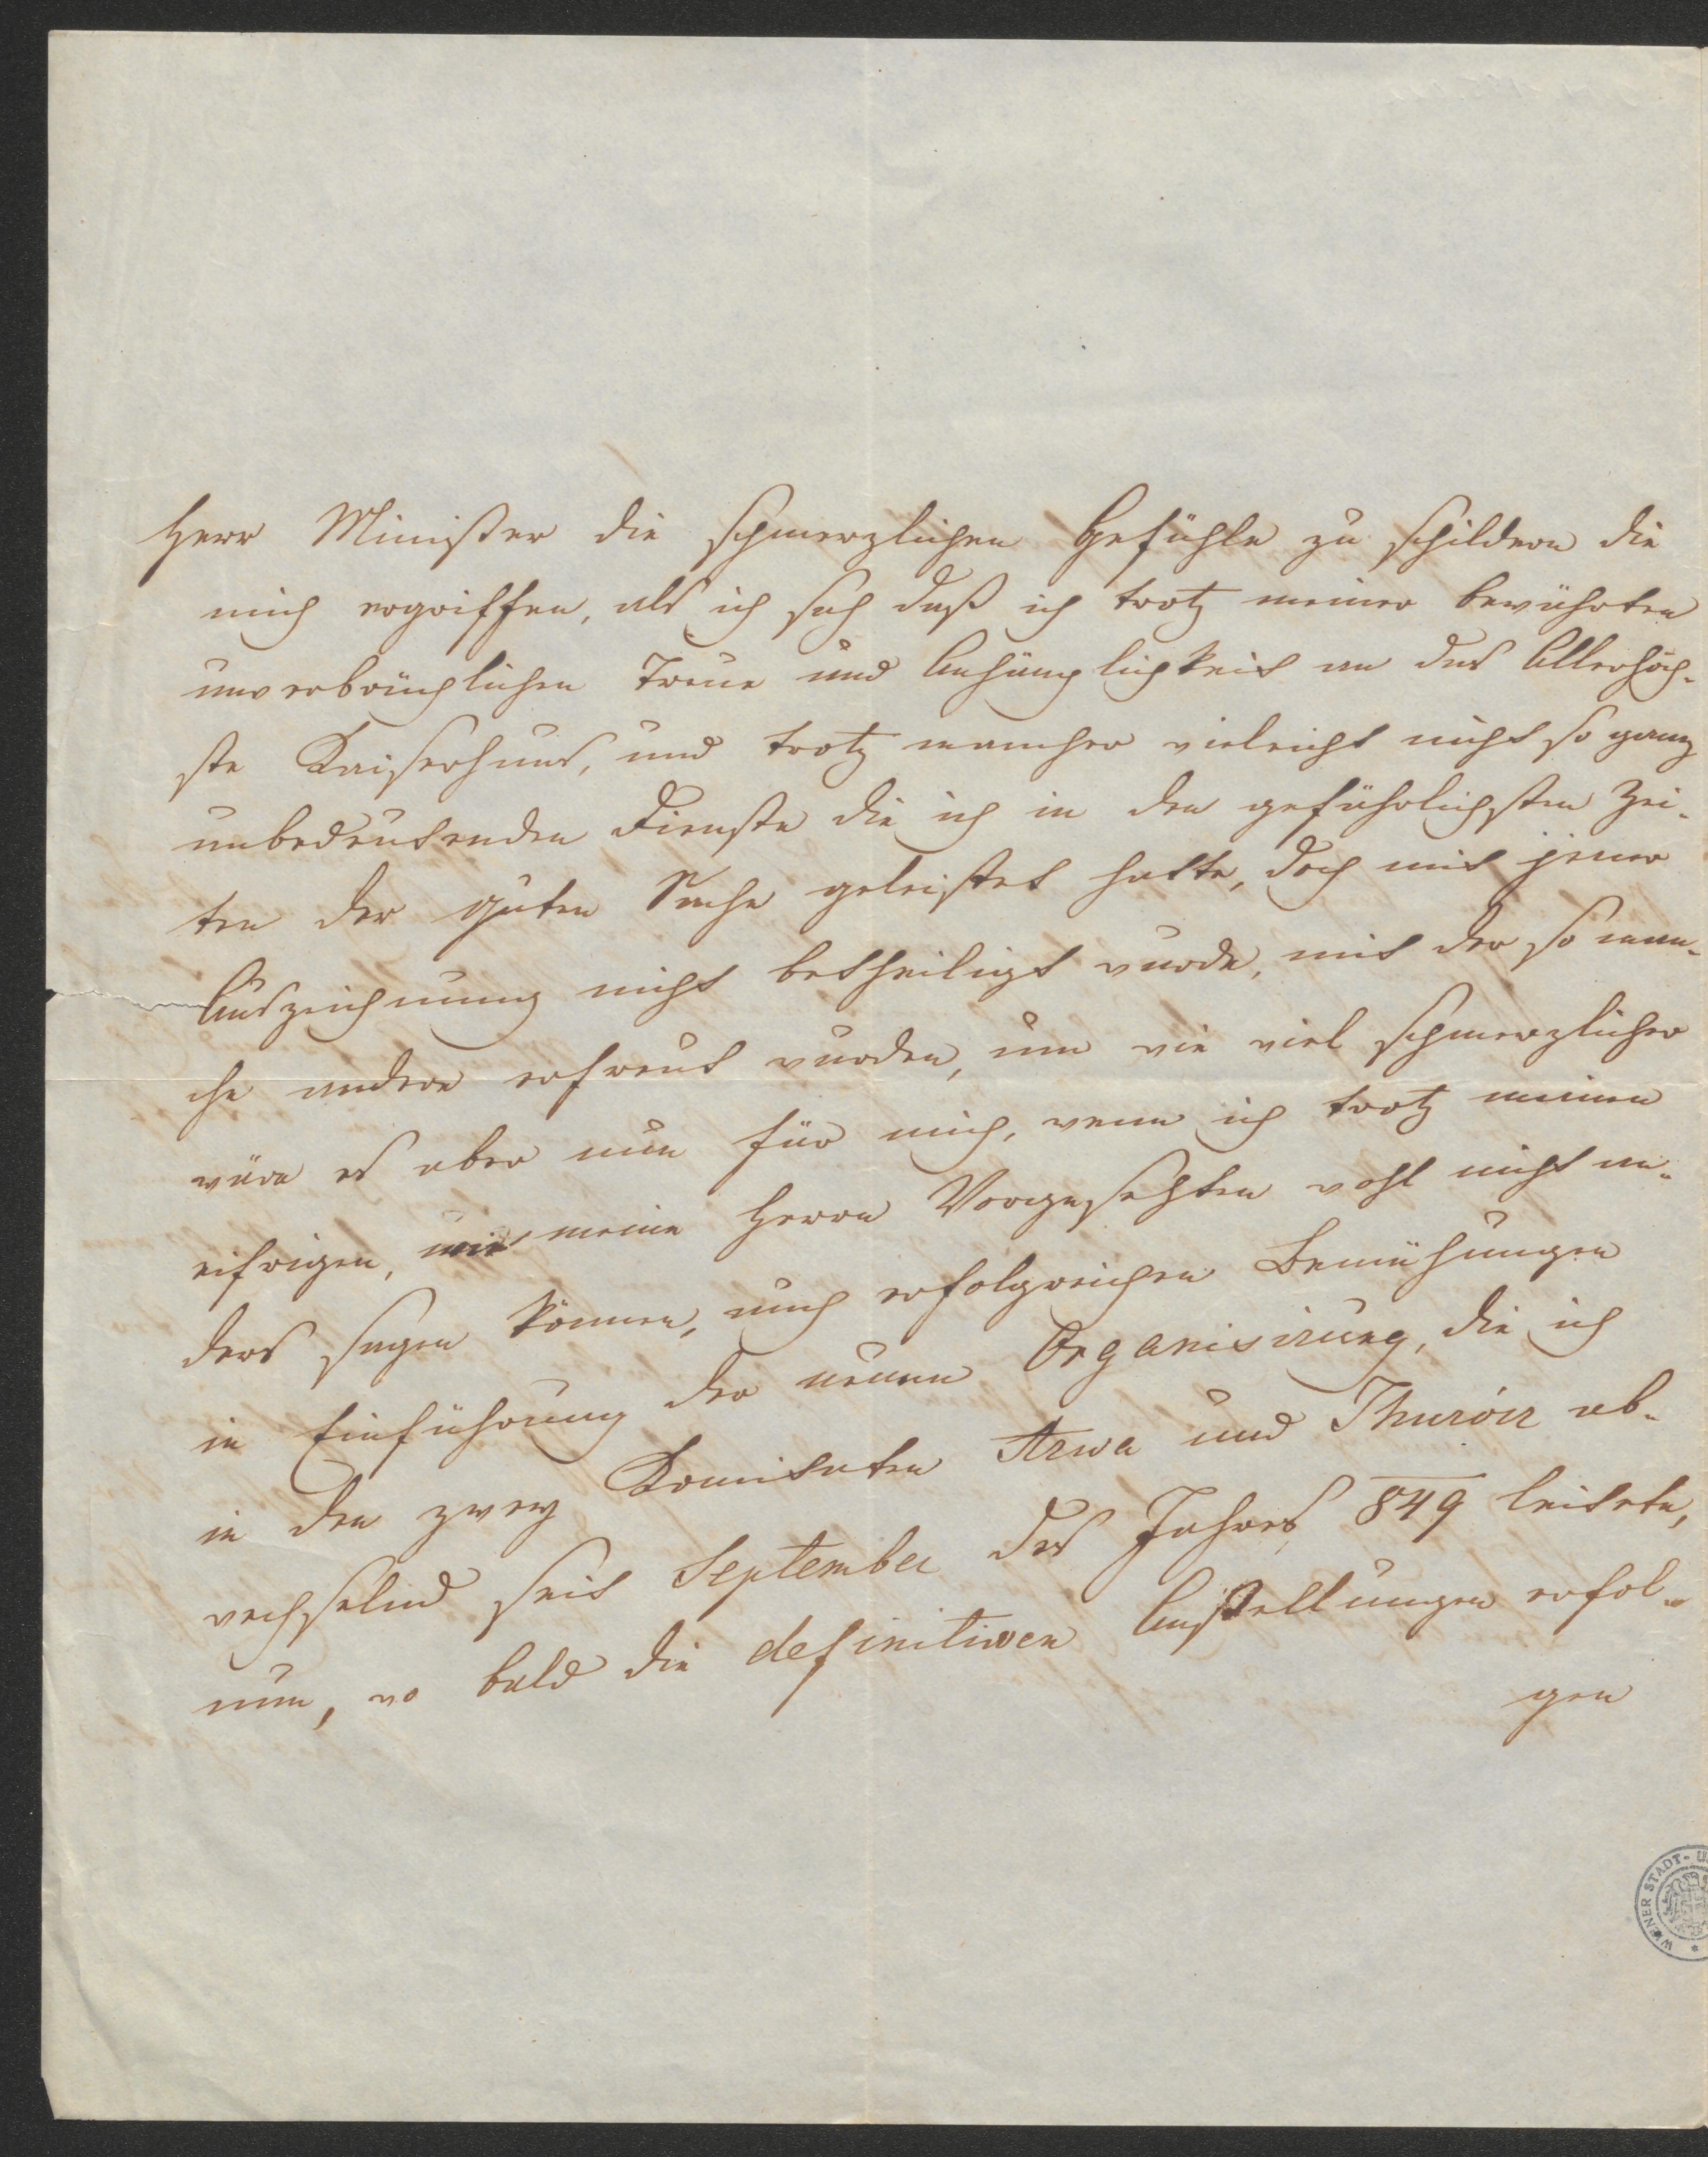 Herr Minister die schmerzlichen Gefühle zu schildern die
mich ergriffen, als ich sah daß ich trotz meiner bewährten
unverbrüchlichen Treue und Anhänglichkeit an das Allerhöch-
ste Kaiserhaus, und trotz mancher vieleicht nicht so ganz
unbedeutenden Dienste die ich in den gefährlichsten Zei-
ten der guten Sache geleistet hatte, doch mit jener
Auszeichnung nicht betheiligt wurde, mit der so man-
che andere erfreut wurden, um wie viel schmerzlicher
wäre es aber nun für mich, wenn ich trotz meinen
eifrigen, wie meine Herrn Vorgesetzten wohl nicht an-
ders sagen können, auch erfolgreichen Bemühungen
in Einführung der neuen Organisirung, die ich
in den zwey Komitaten Arwa und Thurócz ab-
wechselnd seit September des Jahres 849 leistete,
nun, wo bald die definitiven Anstellungen erfol-
gen
WIENER STADT- U